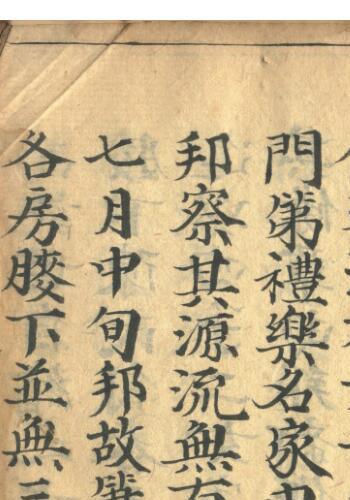 門第禮樂名家
邦察其源流無
七月中旬邦故
各房膝下並無